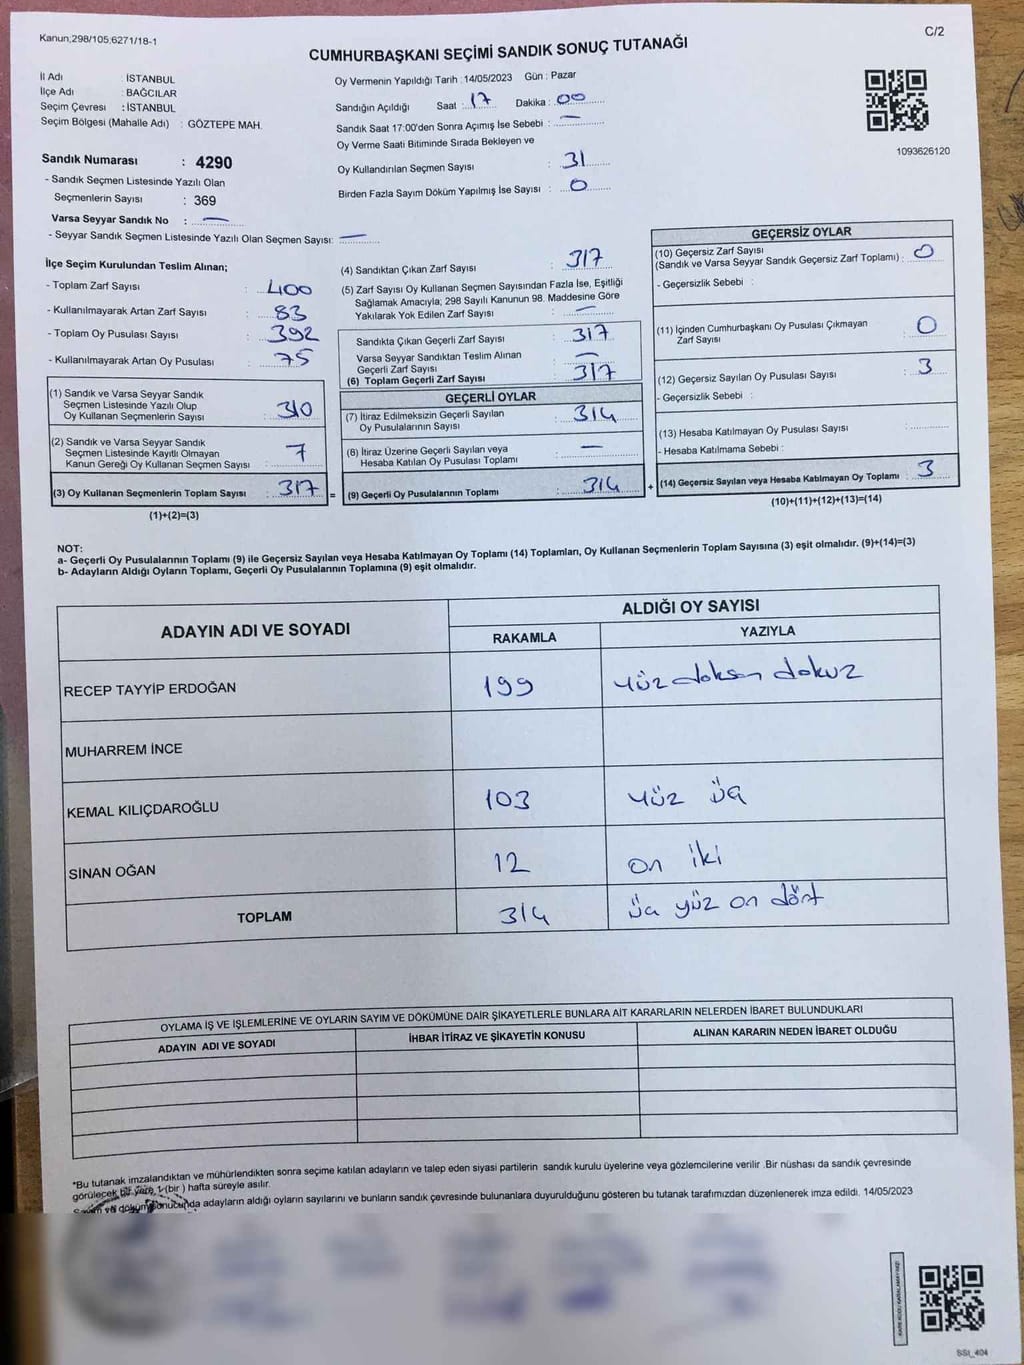 Kanun;298/105;6271/18-1
C/2
CUMHURBAŞKANI SEÇİMİ SANDIK SONUÇ TUTANAĞI
İl Adı : İSTANBUL
İlçe Adı : BAĞCILAR
Seçim Çevresi : İSTANBUL
Seçim Bölgesi (Mahalle Adı) : GÖZTEPE MAH.
Sandık Numarası : 4290
- Sandık Seçmen Listesinde Yazılı Olan
Seçmenlerin Sayısı : 369
Varsa Seyyar Sandık No : —
- Seyyar Sandık Seçmen Listesinde Yazılı Olan Seçmen Sayısı: —
Oy Vermenin Yapıldığı Tarih :14/05/2023 Gün : Pazar
Sandığın Açıldığı Saat : 17 Dakika : 00
Sandık Saat 17:00'den Sonra Açımış İse Sebebi : —
Oy Verme Saati Bitiminde Sırada Bekleyen ve
Oy Kullandırılan Seçmen Sayısı : 31
Birden Fazla Sayım Döküm Yapılmış İse Sayısı : 0
1093626120
İlçe Seçim Kurulundan Teslim Alınan;
- Toplam Zarf Sayısı : 400
- Kullanılmayarak Artan Zarf Sayısı : 83
- Toplam Oy Pusulası Sayısı : 392
- Kullanılmayarak Artan Oy Pusulası : 75
(1) Sandık ve Varsa Seyyar Sandık
Seçmen Listesinde Yazılı Olup
Oy Kullanan Seçmenlerin Sayısı : 310
(2) Sandık ve Varsa Seyyar Sandık
Seçmen Listesinde Kayıtlı Olmayan
Kanun Gereği Oy Kullanan Seçmen Sayısı : 7
(3) Oy Kullanan Seçmenlerin Toplam Sayısı : 317 =
(1)+(2)=(3)
(4) Sandıktan Çıkan Zarf Sayısı : 317
(5) Zarf Sayısı Oy Kullanan Seçmen Sayısından Fazla İse, Eşitliği
Sağlamak Amacıyla; 298 Sayılı Kanunun 98. Maddesine Göre
Yakılarak Yok Edilen Zarf Sayısı : —
Sandıkta Çıkan Geçerli Zarf Sayısı : 317
Varsa Seyyar Sandıktan Teslim Alınan
Geçerli Zarf Sayısı : —
(6) Toplam Geçerli Zarf Sayısı 317
GEÇERLİ OYLAR
(7) İtiraz Edilmeksizin Geçerli Sayılan
Oy Pusulalarının Sayısı : 314
(8) İtiraz Üzerine Geçerli Sayılan veya
Hesaba Katılan Oy Pusulası Toplamı : —
(9) Geçerli Oy Pusulalarının Toplamı : 314 +
GEÇERSİZ OYLAR
(10) Geçersiz Zarf Sayısı
(Sandık ve Varsa Seyyar Sandık Geçersiz Zarf Toplamı) : 0
- Geçersizlik Sebebi :
(11) İçinden Cumhurbaşkanı Oy Pusulası Çıkmayan
Zarf Sayısı : 0
(12) Geçersiz Sayılan Oy Pusulası Sayısı : 3
- Geçersizlik Sebebi :
(13) Hesaba Katılmayan Oy Pusulası Sayısı :
- Hesaba Katılmama Sebebi :
(14) Geçersiz Sayılan veya Hesaba Katılmayan Oy Toplamı : 3
(10)+(11)+(12)+(13)=(14)
NOT:
a- Geçerli Oy Pusulalarının Toplamı (9) ile Geçersiz Sayılan veya Hesaba Katılmayan Oy Toplamı (14) Toplamları, Oy Kullanan Seçmenlerin Toplam Sayısına (3) eşit olmalıdır. (9)+(14)=(3)
b- Adayların Aldığı Oyların Toplamı, Geçerli Oy Pusulalarının Toplamına (9) eşit olmalıdır.
ADAYIN ADI VE SOYADI
ALDIĞI OY SAYISI
RAKAMLA YAZIYLA
RECEP TAYYİP ERDOĞAN 199 yüz doksan dokuz
MUHARREM İNCE
KEMAL KILIÇDAROĞLU 103 yüz üç
SİNAN OĞAN 12 on iki
TOPLAM 314 üç yüz on dört
OYLAMA İŞ VE İŞLEMLERİNE VE OYLARIN SAYIM VE DÖKÜMÜNE DAİR ŞİKAYETLERLE BUNLARA AİT KARARLARIN NELERDEN İBARET BULUNDUKLARI
ADAYIN ADI VE SOYADI İHBAR İTİRAZ VE ŞİKAYETİN KONUSU ALINAN KARARIN NEDEN İBARET OLDUĞU
*Bu tutanak imzalandıktan ve mühürlendikten sonra seçime katılan adayların ve talep eden siyasi partilerin sandık kurulu üyelerine veya gözlemcilerine verilir .Bir nüshası da sandık çevresinde
görülecek bir yere 1 (bir ) hafta süreyle asılır.
Sayım ve döküm sonucunda adayların aldığı oyların sayılarını ve bunların sandık çevresinde bulunanlara duyurulduğunu gösteren bu tutanak tarafımızdan düzenlenerek imza edildi. 14/05/2023
SSt_404